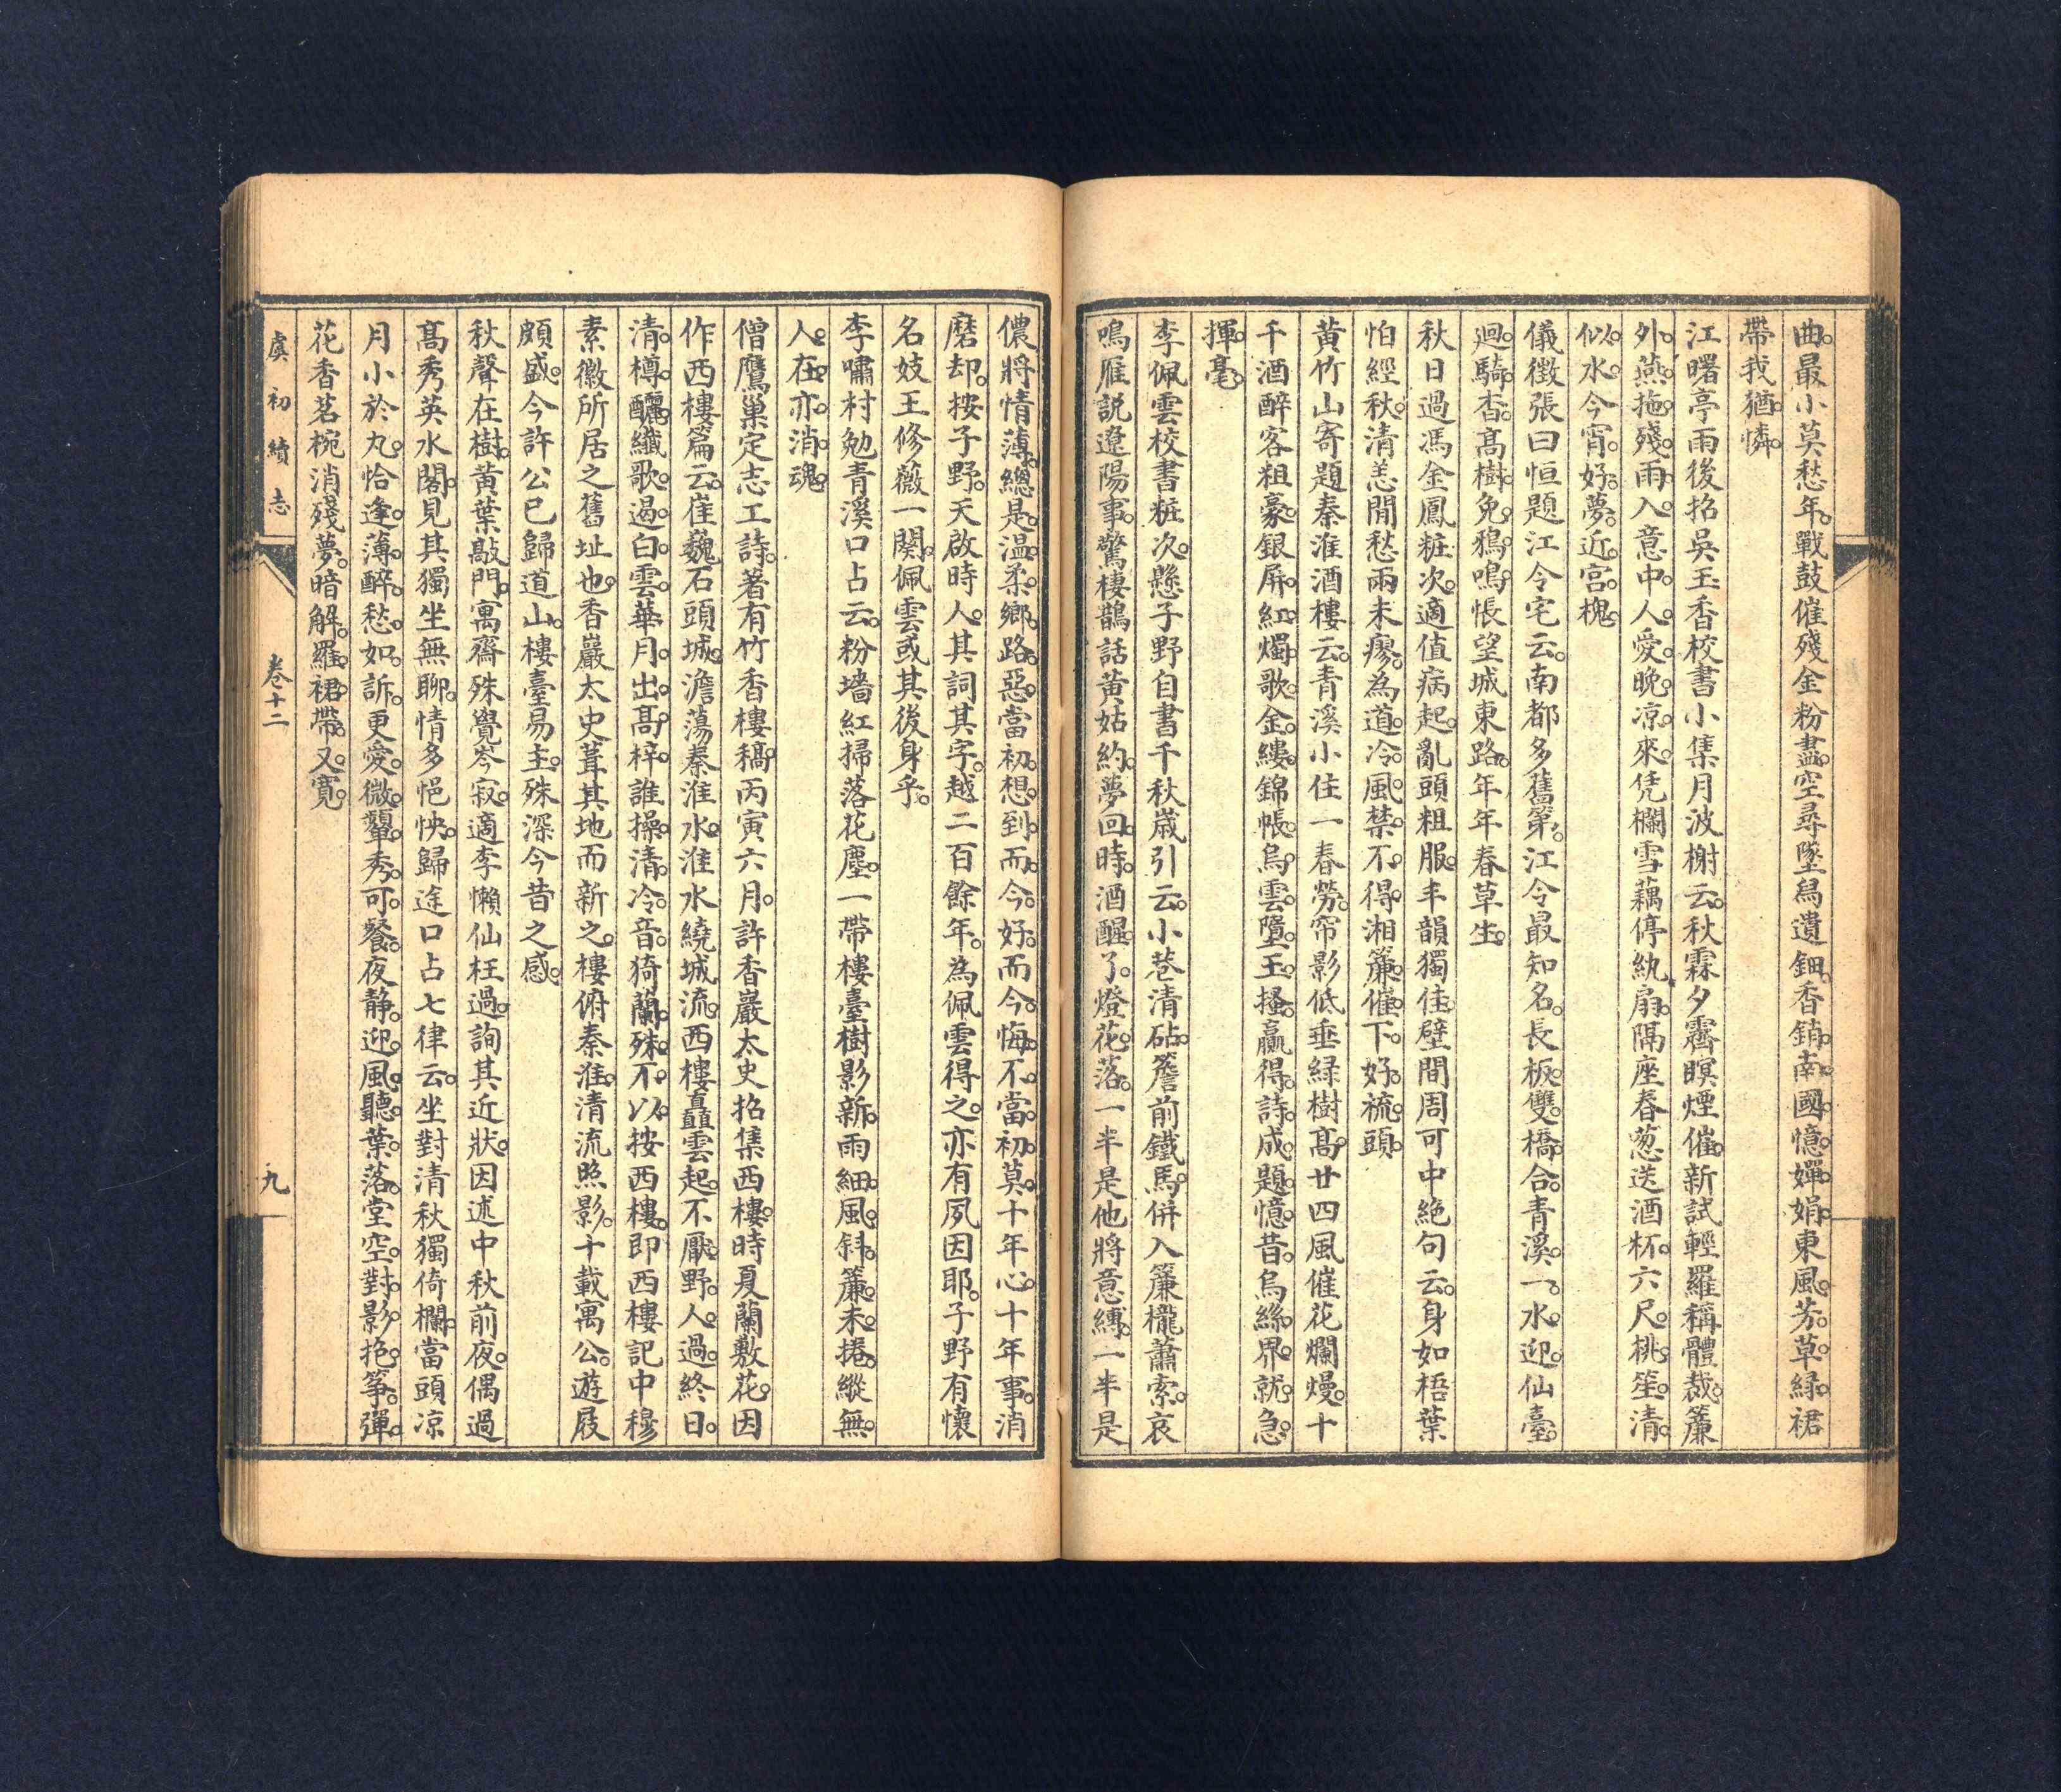 曲。最小莫愁年。戰鼓催殘金粉盡。空尋墜舄遺鈿。香銷南國憶嬋娟。東風芳草綠裙
帶我猶憐。
江曙亭雨後招吳玉香校書小集月波榭云。秋霖夕霽暝煙催。新試輕羅稱體裁。簾
外燕拖殘雨入。意中人愛晚凉來。凭欄雪藕停紈扇。隔座春葱送酒杯。六尺桃笙清
似水。今宵好夢近宮槐。
儀徵張曰恒題江令宅云。南都多舊第。江令最知名。長板雙橋合。青溪一水迎。仙臺
迴騎杳。高樹免鴉鳴。悵望城東路。年年春草生。
秋日過馮金鳳粧次。適值病起。亂頭粗服。丰韻獨佳。壁間周可中絶句云。身如梧葉
怕經秋。清恙閒愁兩未瘳。為道冷風禁不得。湘簾催下好梳頭。
黄竹山寄題秦淮酒樓云。青溪小住一春勞。帘影低垂緑樹高。廿四風催花爛熳。十
千酒醉客粗豪。銀屏紅燭歌金縷。錦帳烏雲墮玉搔。贏得詩成題憶昔。烏絲界就急
揮毫。
李佩雲校書粧次。懸子野自書千秋歲引云。小巷清砧。簷前鐵馬。併入簾櫳蕭索。哀
鳴雁説遼陽事。驚棲鵲話黄姑約。夢回時。酒醒了。燈花落。一半是他將意縳。一半是
儂將情薄。總是温柔鄉路惡。當初想到而今好。而今悔不當初莫。十年心。十年事。消
磨却。按子野。天啟時人。其詞其字。越二百餘年。為佩雲得之。亦有夙因耶。子野有懷
名妓王修薇一闋。佩雲或其後身乎。
李嘯村勉青溪口占云。粉墻紅掃落花塵。一帶樓臺樹影新。雨細風斜簾未捲。縱無
人在亦消魂。
僧鷹巢定志工詩。著有竹香樓稿。丙寅六月。許香巖太史招集西樓。時夏蘭敷花。因
作西樓篇云。崔巍石頭城。澹蕩秦淮水。淮水繞城流。西樓矗雲起。不厭野人過。終日
清樽釃。纖歌遏白雲。華月出高梓。誰操清冷音。猗蘭殊不以。按西樓。即西樓記中穆
素徽所居之舊址也。香巖太史葺其地而新之。樓俯秦淮。清流照影。十載寓公。遊屐
頗盛。今許公已歸道山。樓臺易主。殊深今昔之感。
秋聲在樹。黄葉敲門。寓齋殊覺岑寂。適李懶仙枉過。詢其近狀。因述中秋前夜。偶過
高秀英水閣。見其獨坐無聊。情多悒怏。歸途口占七律云。坐對清秋獨倚欄。當頭凉
月小於丸。恰逢薄醉愁如訴。更愛微顰秀可餐。夜静迎風聽葉落。堂空對影抱箏彈。
花香茗椀消殘夢。暗解羅裙帶又寬。
虞初續志
卷十二
九